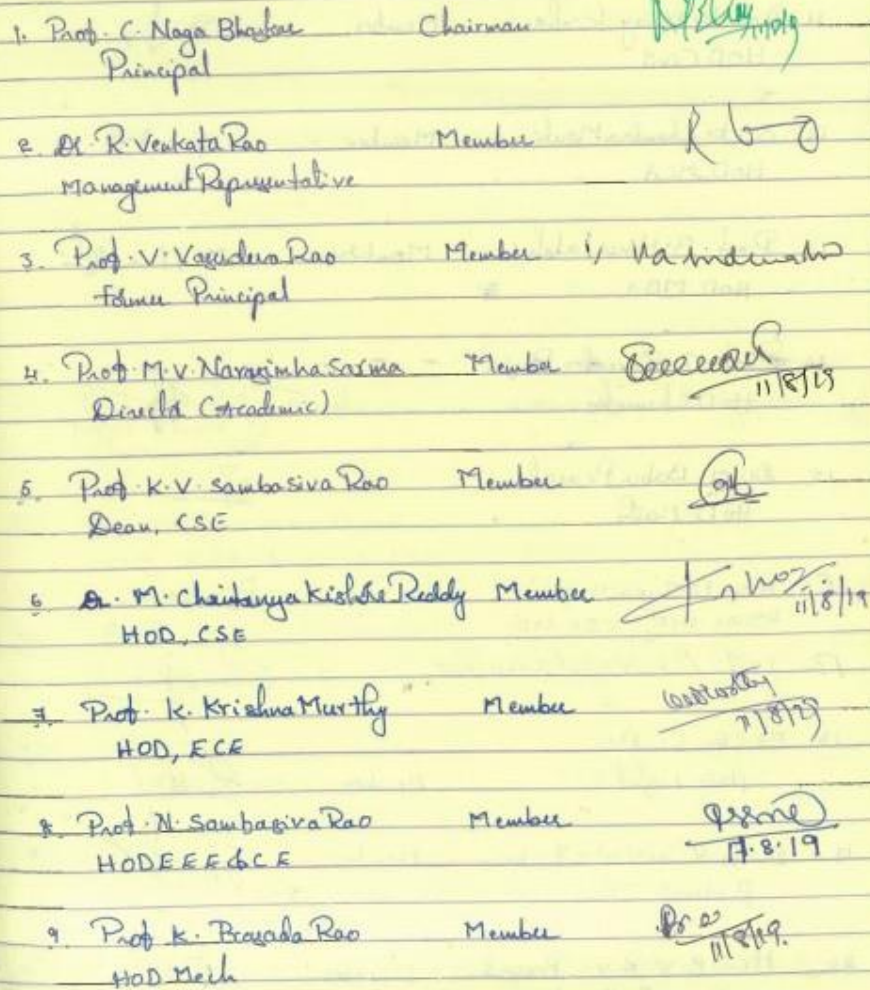 1. Prof. C. Naga Bhaskar Chairman
Principal
2. Dr. R. Venkata Rao Member
Management Representative
3. Prof. V. Vasudeva Rao Member
Former Principal
4. Prof. M. V. Narasimha Sarma Member 11/8/19
Director (Academic)
5. Prof. K. V. Sambasiva Rao Member
Dean, CSE
6 Dr. M. Chaitanya Kishore Reddy Member 11/8/19
HOD, CSE
7. Prof. K. Krishna Murthy Member 11/8/19
HOD, ECE
8. Prof. N. Sambasiva Rao Member 17.8.19
HOD EEE & CE
9 Prof K. Prasada Rao Member 11/8/19.
HOD Mech